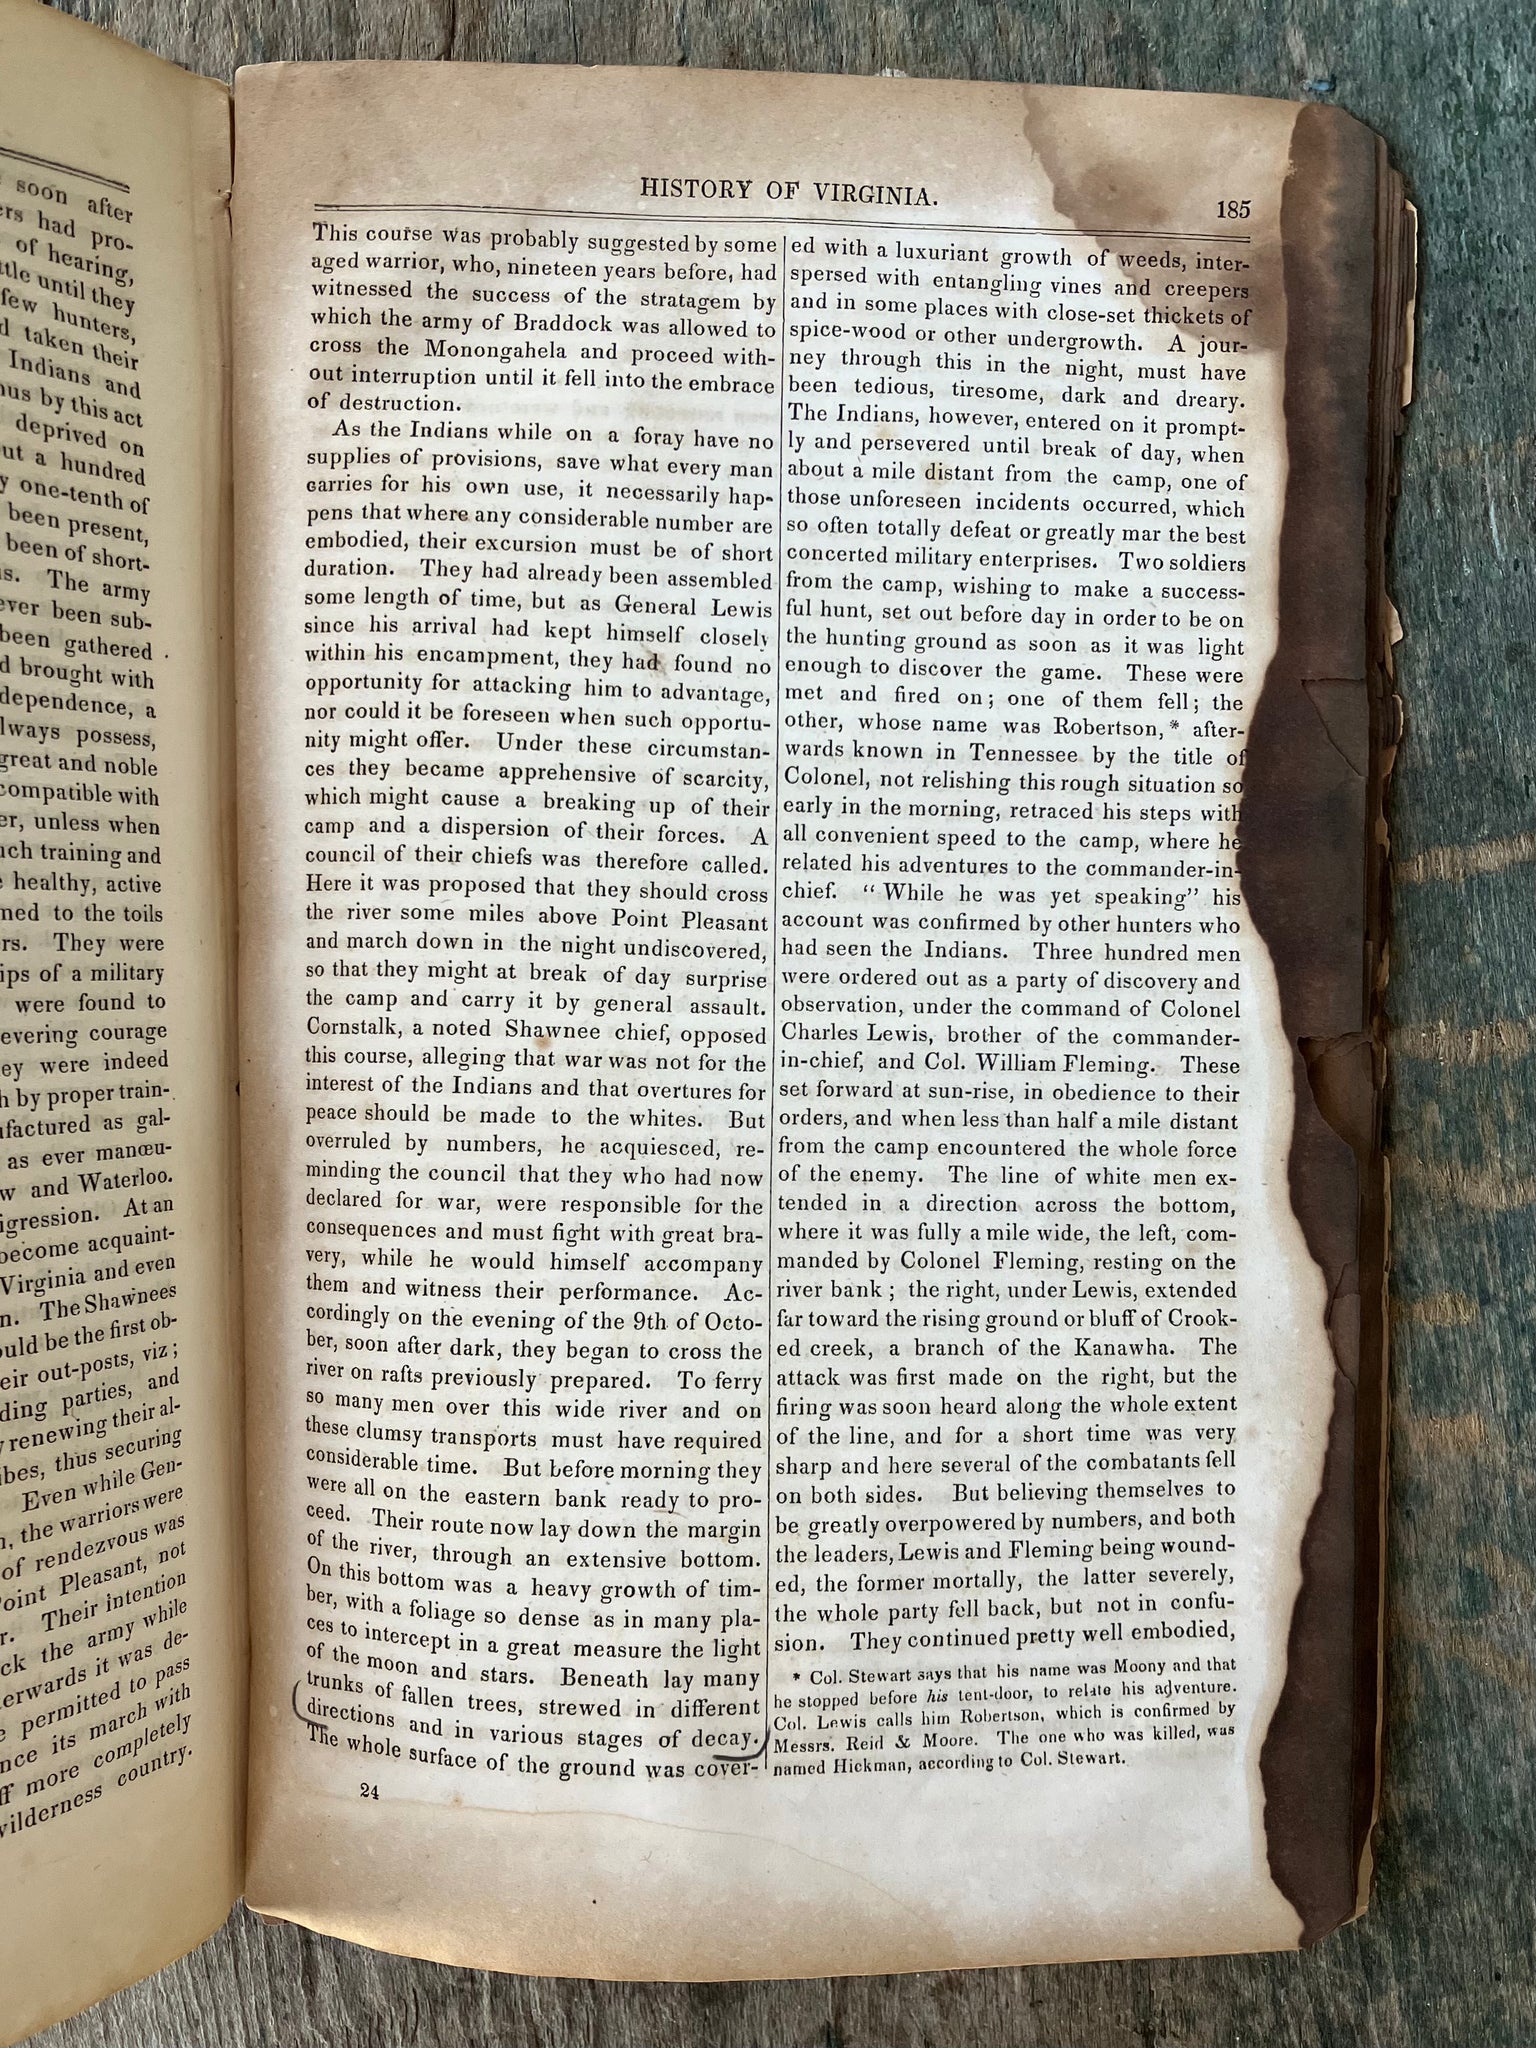 soon after
ers had pro-
of hearing,
ttle until they
few hunters,
d taken their
Indians and
nus by this act
deprived on
out a hundred
y one-tenth of
been present,
been of short-
us. The army
ever been sub-
been gathered
d brought with
dependence, a
lways possess,
great and noble
compatible with
er, unless when
uch training and
healthy, active
ned to the toils
rs. They were
ips of a military
were found to
evering courage
ey were indeed
h by proper train-
ufactured as gal-
as ever manœu-
w and Waterloo.
igression. At an
become acquaint-
Virginia and even
n. The Shawnees
ould be the first ob-
eir out-posts, viz;
ding parties, and
y renewing their al-
ibes, thus securing
Even while Gen-
n, the warriors were
of rendezvous was
Point Pleasant, not
r. Their intention
ck the army while
terwards it was de-
e permitted to pass
nce its march with
ff more completely
wilderness country.
HISTORY OF VIRGINIA.
185
This course was probably suggested by some
aged warrior, who, nineteen years before, had
witnessed the success of the stratagem by
which the army of Braddock was allowed to
cross the Monongahela and proceed with-
out interruption until it fell into the embrace
of destruction.
As the Indians while on a foray have no
supplies of provisions, save what every man
carries for his own use, it necessarily hap-
pens that where any considerable number are
embodied, their excursion must be of short
duration. They had already been assembled
some length of time, but as General Lewis
since his arrival had kept himself closely
within his encampment, they had found no
opportunity for attacking him to advantage,
nor could it be foreseen when such opportu-
nity might offer. Under these circumstan-
ces they became apprehensive of scarcity,
which might cause a breaking up of their
camp and a dispersion of their forces. A
council of their chiefs was therefore called.
Here it was proposed that they should cross
the river some miles above Point Pleasant
and march down in the night undiscovered,
so that they might at break of day surprise
the camp and carry it by general assault.
Cornstalk, a noted Shawnee chief, opposed
this course, alleging that war was not for the
interest of the Indians and that overtures for
peace should be made to the whites. But
overruled by numbers, he acquiesced, re-
minding the council that they who had now
declared for war, were responsible for the
consequences and must fight with great bra-
very, while he would himself accompany
them and witness their performance. Ac-
cordingly on the evening of the 9th of Octo-
ber, soon after dark, they began to cross the
river on rafts previously prepared. To ferry
so many men over this wide river and on
these clumsy transports must have required
considerable time. But before morning they
were all on the eastern bank ready to pro-
ceed. Their route now lay down the margin
of the river, through an extensive bottom.
On this bottom was a heavy growth of tim-
ber, with a foliage so dense as in many pla-
ces to intercept in a great measure the light
of the moon and stars. Beneath lay many
trunks of fallen trees, strewed in different
directions and in various stages of decay.
The whole surface of the ground was cover-
24
ed with a luxuriant growth of weeds, inter-
spersed with entangling vines and creepers
and in some places with close-set thickets of
spice-wood or other undergrowth. A jour-
ney through this in the night, must have
been tedious, tiresome, dark and dreary.
The Indians, however, entered on it prompt-
ly and persevered until break of day, when
about a mile distant from the camp, one of
those unforeseen incidents occurred, which
so often totally defeat or greatly mar the best
concerted military enterprises. Two soldiers
from the camp, wishing to make a success-
ful hunt, set out before day in order to be on
the hunting ground as soon as it was light
enough to discover the game. These were
met and fired on; one of them fell; the
other, whose name was Robertson,* after-
wards known in Tennessee by the title of
Colonel, not relishing this rough situation so
early in the morning, retraced his steps with
all convenient speed to the camp, where he
related his adventures to the commander-in-
chief. "While he was yet speaking" his
account was confirmed by other hunters who
had seen the Indians. Three hundred men
were ordered out as a party of discovery and
observation, under the command of Colonel
Charles Lewis, brother of the commander-
in-chief, and Col. William Fleming. These
set forward at sun-rise, in obedience to their
orders, and when less than half a mile distant
from the camp encountered the whole force
of the enemy. The line of white men ex-
tended in a direction across the bottom,
where it was fully a mile wide, the left, com-
manded by Colonel Fleming, resting on the
river bank; the right, under Lewis, extended
far toward the rising ground or bluff of Crook-
ed creek, a branch of the Kanawha. The
attack was first made on the right, but the
firing was soon heard along the whole extent
of the line, and for a short time was very
sharp and here several of the combatants fell
on both sides. But believing themselves to
be greatly overpowered by numbers, and both
the leaders, Lewis and Fleming being wound-
ed, the former mortally, the latter severely,
the whole party fell back, but not in confu-
sion. They continued pretty well embodied,
* Col. Stewart says that his name was Moony and that
he stopped before his tent-door, to relate his adventure.
Col. Lewis calls him Robertson, which is confirmed by
Messrs. Reid & Moore. The one who was killed, was
named Hickman, according to Col. Stewart.